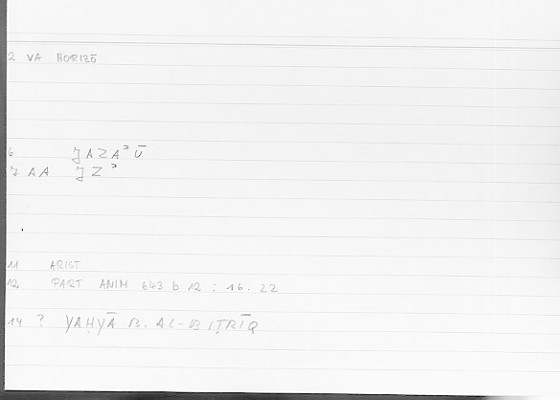 2 VA HORIZŌ
6 ǧAZAʾŪ
7 AA ǧZʾ
11 ARIST
12 PART ANIM 643 b 12 : 16.22
14 ? YAḤYĀ B. AL-BIṬRĪQ